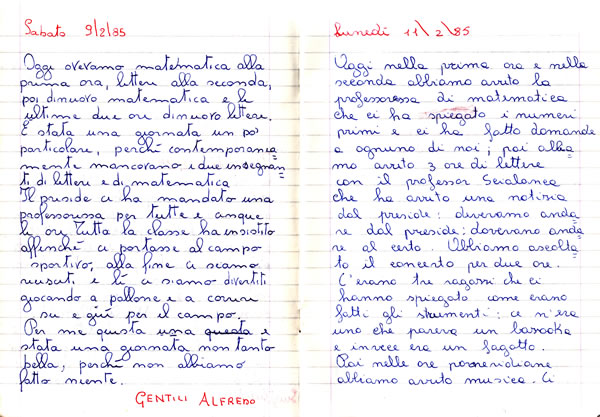 Sabato 9/2/85
Oggi avevamo matematica alla
prima ora, lettere alla seconda,
poi dinuovo matematica e le
ultime due ore dinuovo lettere.
È stata una giornata un po'
particolare, perché contemporanea
mente mancavano i due insegnan
ti di lettere e di matematica
Il preside ci ha mandato una
professoressa per tutte e cinque
le ore Tutta la classe ha insistito
affinché ci portasse al campo
sportivo; alla fine ci siamo
riusciti e lì ci siamo divertiti
giocando a pallone e a correre
su e giù per il campo.
Per me questa una questa è
stata una giornata non tanto
bella, perché non abbiamo
fatto niente.
GENTILI ALFREDO
Lunedì 11/2/85
Oggi nella prima ora e nella
seconda abbiamo avuto la
professoressa di matematica
che ci ha spiegato i numeri
primi e ci ha fatto domande
a ognuno di noi; poi abbia
mo avuto 3 ore di lettere
con il professor Scialanca
che ha avuto una notizia
dal preside: dovevamo anda
re dal preside: dovevano anda
re al certo. Abbiamo ascolta
to il concerto per due ore.
C'erano tre ragazzi che ci
hanno spiegato come erano
fatti gli strumenti: ce n'era
uno che pareva un basooka
e invece era un fagotto.
Poi nelle ore pomeridiane
abbiamo avuto musica. Ci